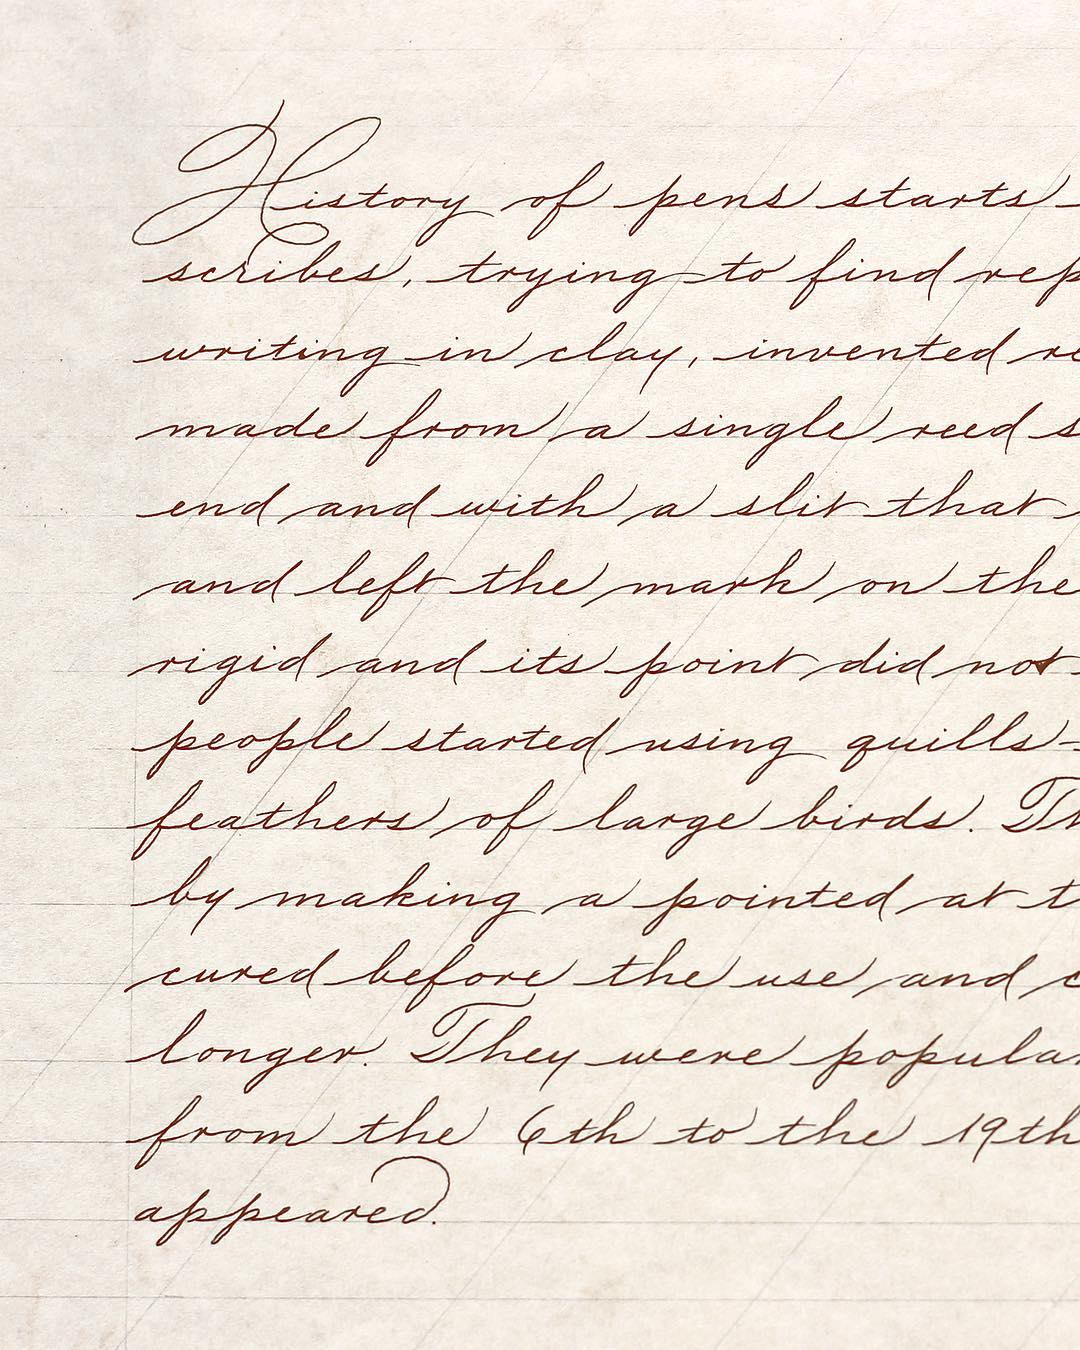 History of pens starts
scribes, trying to find rep
writing in clay, invented re
made from a single reed s
end and with a slit that
and left the mark on the
rigid and its point did not
people started using quills
feathers of large birds. Th
by making a pointed at t
cured before the use and c
longer. They were popular
from the 6th to the 19th
appeared.